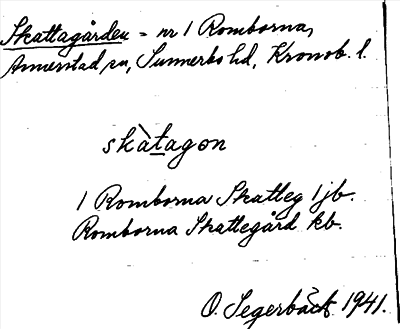 Skattagården = nr 1 Romborna,
Annerstad sn, Sunnerbo hd, Kronob. l.
skàtagon
1 Romborna Skatteg 1 jb.
Romborna Skattegård kb.
O. Segerbäck 1941.